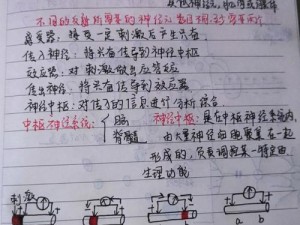 不同的反射所需要的神经元数目
感受器：接受一定刺激后产生兴奋
传入神经：将兴奋传导到神经中枢
效应器：对刺激做出应答反应
传出神经：将兴奋传导到效应器
神经中枢：对传入的信息进行分析综合
中枢神经系统：脑 脊髓
神经中枢：是在中枢神经系统内，
由大量神经细胞聚集在一起
形成的，负责调控某一特定的
生理功能
刺激
a b